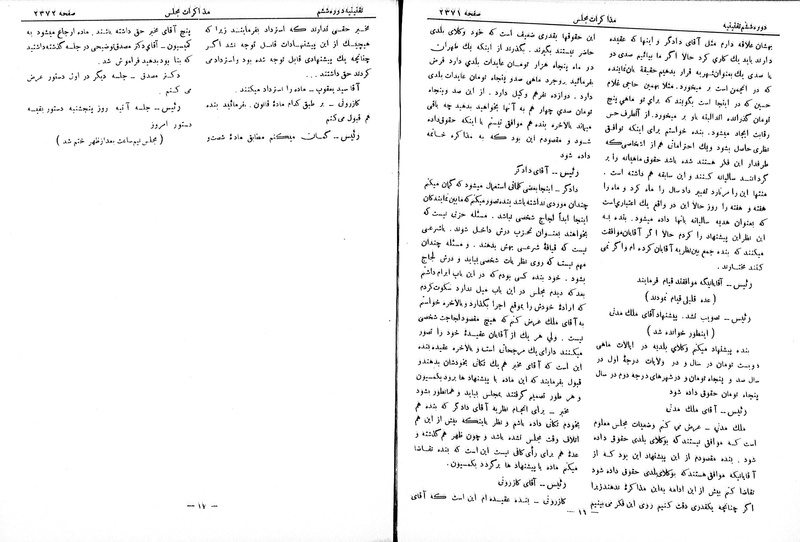 دوره ششم تقنینیه مذاکرات مجلس صفحه ۲۳۷۱
بهشان علاقه دارم مثل آقای دادگر و اینها که عقیده
دارند باید یك کاری کرد حالا اگر ما بیائیم صدی دو
یا صدی یك بعنوان شهریه قرار بدهیم حقیقة بآن نماینده
که در انجمن است بر میخورد. مثلا بهمین حاجی غلام
حسین که در اینجا است بگویند که برای تو ماهی پنج
تومان گذارنده البته باو بر میخورد. از آنطرف حس
رقابت ایجاد میشود. بنده خواستم برای اینکه توافق
نظری حاصل بشود و یك احترامی هم از اشخاصی که
طرفدار این فکر هستند شده باشد حقوق ماهیانه را بر
گرداندم سالیانه کنند و این سابقه هم داشته است .
منتها این را مرتبا تغییر داد سال را ماه کرد و ماه را
هفته و هفته را روز حالا این در واقع یك اعتباری است
که بعنوان هدیه سالیانه بآنها داده میشود. بنده به
این نظر این پیشنهاد را کردم حالا اگر آقایان موافقت
میکنند که بنده جمع بین نظریه آقایان کرده ام والا گر نمی
کنند مختارند .
رئیس ــ آقایانیکه موافقند قیام فرمایند
( عده قلیلی قیام نمودند )
رئیس ــ تصویب نشد. پیشنهاد آقای ملك مدنی
( اینطور خوانده شد )
بنده پیشنهاد میکنم وکلای بلدیه در ایالات ماهی
دویست تومان در سال و در ولایات درجه اول در
سال صد و پنجاه تومان و در شهرهای درجه دوم در سال
پنجاه تومان حقوق داده شود
رئیس ــ آقای ملك مدنی
ملك مدنی ــ عرض می کنم وضعیات مجلس معلوم
است که موافق نیستند که بوکلای بلدی حقوق داده
شود . بنده مقصودم از این پیشنهاد این بود که از
آقایانیکه موافق هستند که بوکلای بلدی حقوق داده شود
تقاضا کنم بیش از این ادامه به این مذاکره ندهند زیرا
اگر چنانچه یکقدری دقت کنیم روی این فکر می بینیم
این حقوقها بقدری ضعیف است که خود وکلای بلدی
حاضر نیستند بگیرند . بگذرند از اینکه یك طهران
در ماه پنجاه هزار تومان عایدات بلدی دارد فرض
بفرمائید بروجرد ماهی صد و پنجاه تومان عایدات بلدی
دارد . دوازده نفر هم وکیل دارد . از این صد و پنجاه
تومان صدی چهار هم به آنها بخواهید بدهید چه باقی
میماند بالاخره بنده هم موافق نیستم با اینکه حقوق داده
شود و مقصودم این بود که به مذاکره خاتمه
داده شود
رئیس ــ آقای دادگر
دادگر ــ اینجا بعضی کلماتی استعمال میشود که گمان میکنم
چندان موردی نداشته باشد بنده تصور میکنم که ما بین نمایندگان
اینجا ابداً لجاج شخصی نباشد . مسئله حزبی نیست که
بخواهند بعنوان تحزب درش داخل شوند. یا شرعی
نیست که قیافهٔ شرعی بهش بدهند . و مسئله چندان
مهم نیست که روی نظریات شخصی بیاید و درش لجاج
بشود . خود بنده کسی بودم که در این باب ابرام داشتم
بعد که دیدم مجلس در این باب میل ندارد سکوت کردم
که اراده خودش را بموقع اجرا بگذارد و بالاخره خواستم
به آقای ملك عرض کنم که هیچ مقصود لجاجت شخصی
نیست . ولی هر یك از آقایان عقیدهٔ خود را تصور
میکنند دارای یك مرجحاتی است و بالاخره عقیده بنده
این است که آقای مخبر هم یك تکانی بخودشان بدهند و
قبول بفرمایند که این ماده با پیشنهاد ها برود بکمیسیون
و هر طور تصمیم گرفتند بمجلس بیاید و همانطور بشود
مخبر ــ برای انجام نظریه آقای دادگر که بنده هم
بخودم تکانی داده باشم و نظر باینکه بیش از این هم
اتلاف وقت مجلس نشده باشد و چون ظهر هم گذشته و
عده هم برای رأی کافی نیست این است که بنده تقاضا
میکنم ماده با پیشنهاد ها برگردد بکمسیون .
رئیس ــ آقای کازرونی
کازرونی ــ بنده عقیده ام این است که آقای
ــ ۱۶ ــ
تقنینیه دوره ششم مذاکرات مجلس صفحه ۲۳۷۲
مخبر حقی ندارند که استرداد بفرمایند زیرا که
هیچیك از این پیشنهادات قابل توجه نشد اگر
چنانچه یك پیشنهادی قابل توجه شده بود و استرداد می
کردند حق داشتند . . .
آقا سید یعقوب ــ ماده را استرداد میکنند .
کازرونی ــ بر طبق کدام مادهٔ قانون . بفرمائید بنده
هم قبول میکنم
رئیس ــ گمان میکنم مطابق مادهٔ شصت و
پنج آقای مخبر حق داشته باشند . ماده ارجاع میشود به
کمیسیون ــ آقای دکتر مصدق توضیحی در جلسه گذشته داشتید
که بنا بود بدهید فراموش شد .
دکتر مصدق ــ جلسه دیگر در اول دستور عرض
می کنم .
رئیس ــ جلسه آتیه روز پنجشنبه دستور بقیه
دستور امروز
( مجلس نیمساعت بعد از ظهر ختم شد )
ــ ۱۷ ــ